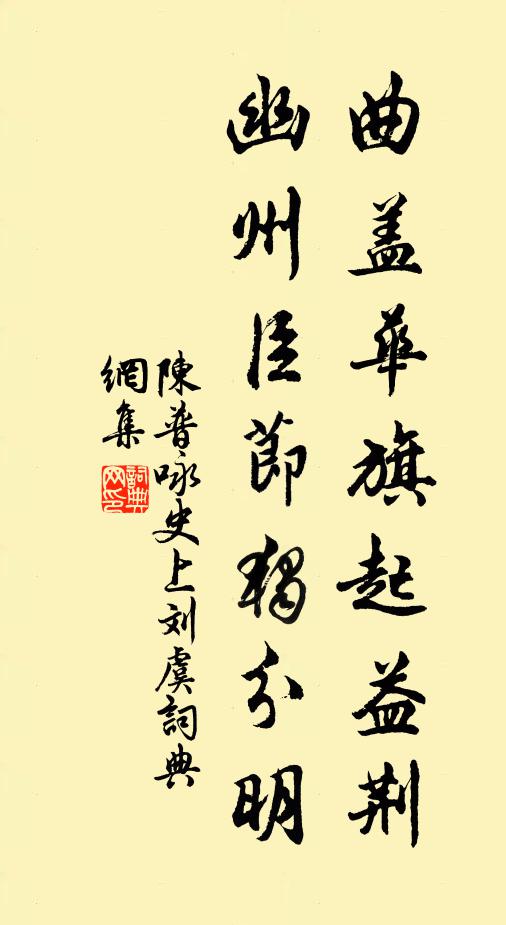 曲盖華旗起益荆
幽州臣節獨分明
陳普咏史上刘虞詞典
網集
詞典
网印